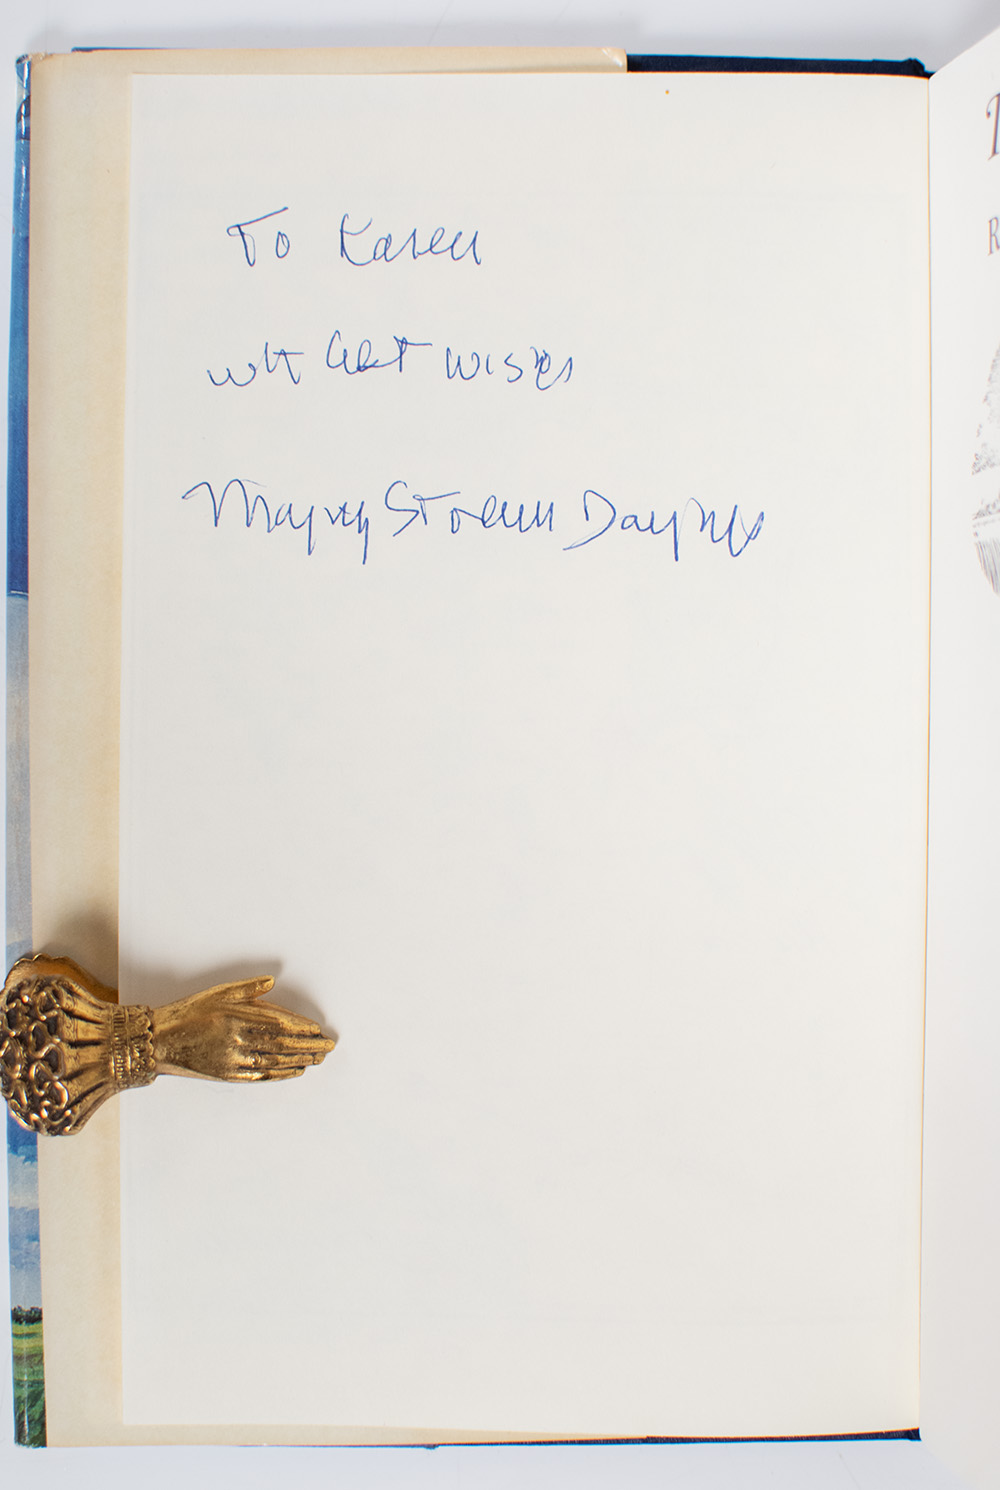 To Karen
with best wishes
Marjory Stoneman Douglas
R